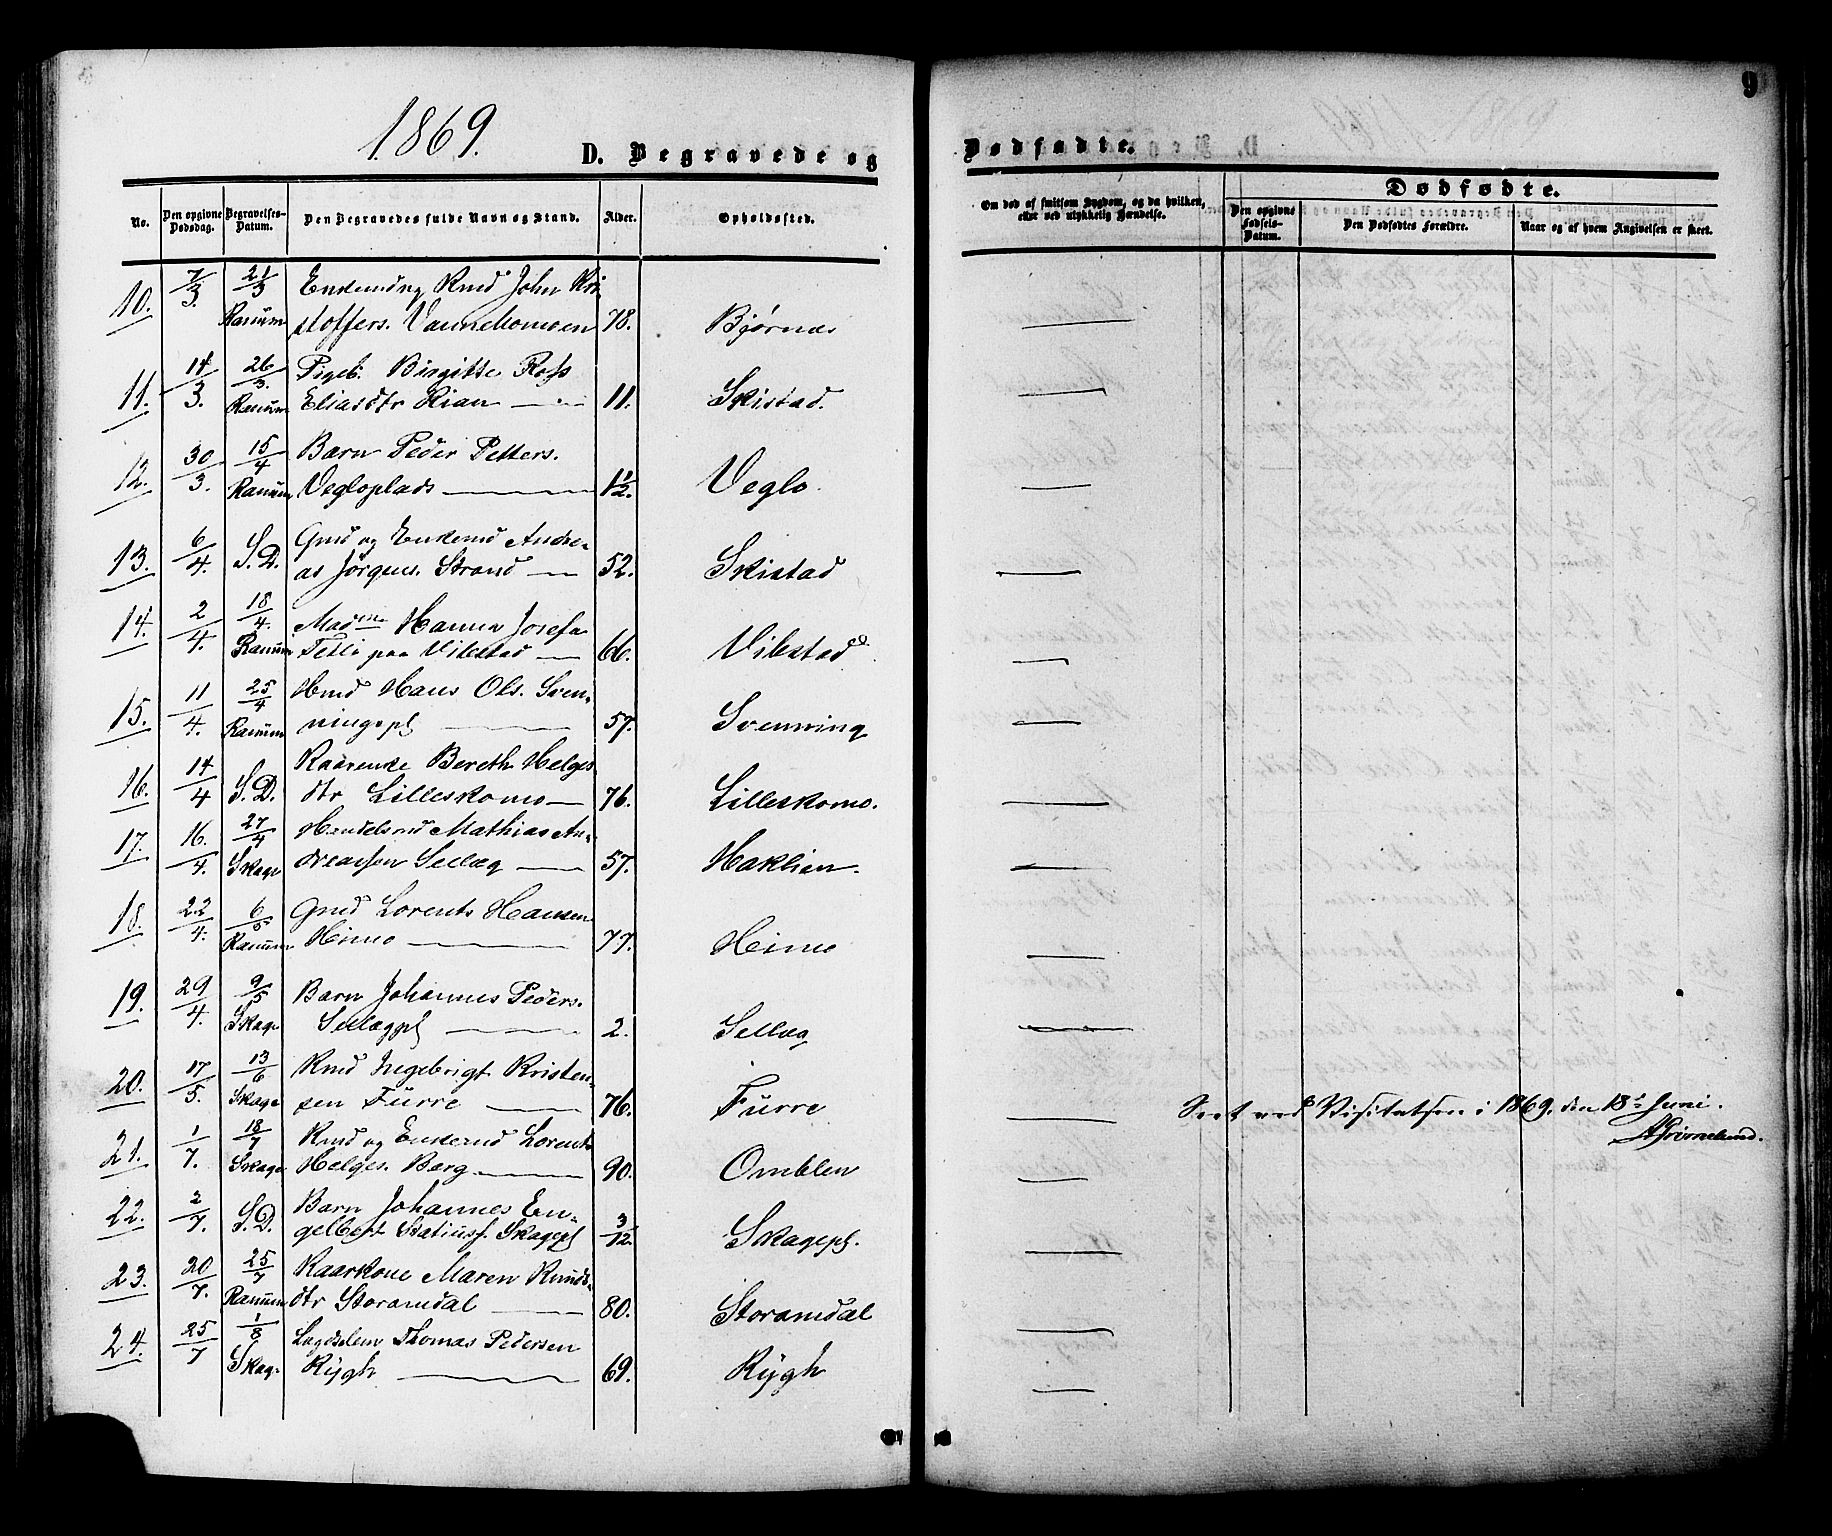 1869.
D. Begravede og
No.
Den opgivne Dødsdag.
Begravelses-Datum.
Den Begravedes fulde Navn og Stand.
Alder.
Opholdssted.
10. 7/3. 21/3 Enkemd og Kmd John Kri-
Ranum stoffers. Vannebomoen 78. Bjørnes
11. 14/3. 26/3. Pigeb. Birgitte Ross
Ranum Eliasdtr Rian 11. Skistad.
12. 30/3. 15/4 Barn Peder Petters.
Ranum Vegloplads 1 1/2. Veglo.
13. 6/4. S.D. Gmd og Enkemd Andre-
as Jørgens. Strand 52. Skistad
14. 2/4. 18/4. Madme Hanna Josefa
Ranum paa Vibstad 66. Vibstad
15. 11/4. 25/4 Hmd Hans Ols. Sven-
Ranum ningspl 57. Svenning
16. 14/4 S.D. Kaarenke Bereth Helges
dtr Lilleskomo 76. Lilleskomo.
17. 16./4. 27/4 Handelsmd Mathias An-
Skage dreassen Sellæg 57. Haklien.
18. 22/4. 6/5 Gmd Lorents Hansen
Ranum Heimo 77. Heimo
19. 29/4. 9/5 Barn Johannes Peders.
Skage Sellægpl 2. Sellæg
20. 17/5. 13/6 Kmd Ingebrigt Kristen-
Skage sen Furre 76. Furre
21. 1/7. 18/7 Kmd og Enkemd Lorents
Skage Helges. Barg 90. Omblen
22. 2/7. S.D. Barn Johannes En-
gelbert Statiuss. Skagepl 3/12. Skagepl.
23. 20/7. 25/7 Kaarkone Maren Knuds-
Ranum dtr Storamdal 80. Storamdal
24. 25/7 1/8 Lægdslem Thomas Pedersen
Skage Rygh 69. Rygh
9
Dødfødte.
Om død af smitsom Sygdom, og da hvilken,
eller ved ulykkelig Hændelse.
Dødfødte.
Den opgivne Fødsels-Datum.
Den Dødfødtes Forældre.
Naar og af hvem Angivelsen er skeet.
Seet ved Visitatsen i 1869. den 18de Juni.
A Grimelund.